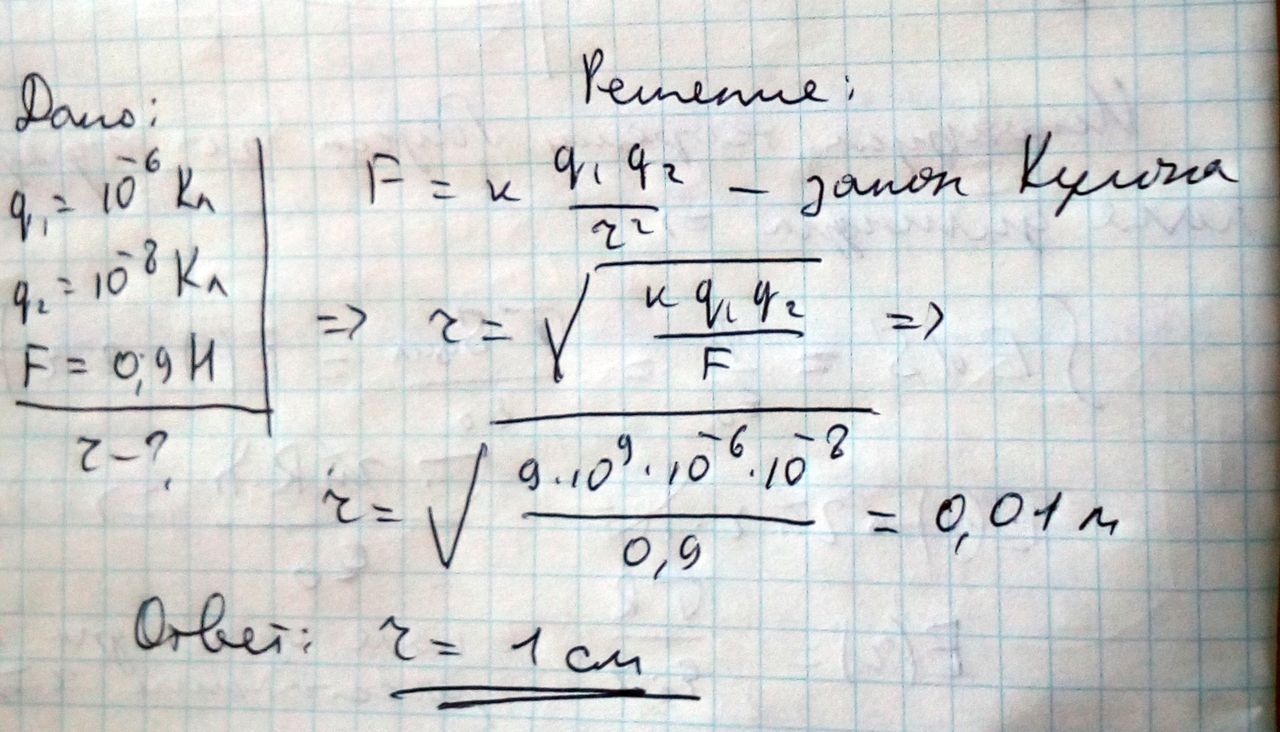 Дано:
q₁ = 10⁻⁶ Кл
q₂ = 10⁻⁸ Кл
F = 0,9 Н
r - ?
Решение:
F = k q₁ q₂ / r² - закон Кулона
=> r = √(k q₁ q₂ / F) =>
r = √(9·10⁹·10⁻⁶·10⁻⁸ / 0,9) = 0,01 м
Ответ: r = 1 см